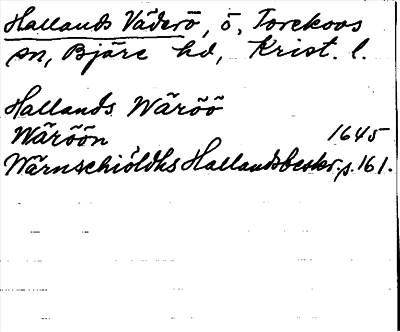 Hallands Väderö, ö, Torekovs
sn, Bjäre hd, Krist. l.
Hallands Wäröö
Wäröön 1645
Wärnschiöldhs Hallandsbeskr. s. 161.